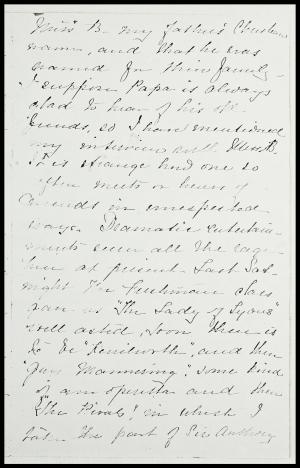 Miss B. my father's Christian
name, and that he was
named for their family.
I suppose Papa is always
glad to hear of his old
friends, so I have mentioned
my interview with
It is strange how one so
often meets or hears of
friends in unexpected
ways. Dramatic entertain-
ments seem all the rage
here at present. Last Sat.
night the Freshman class
gave us "The Lady of Lyons"
well acted, soon there is
to be "Kenilworth", and then
"Guy Mannering", some kind
of an operetta and then
"The Rivals", in which I
take the part of Sir Anthony